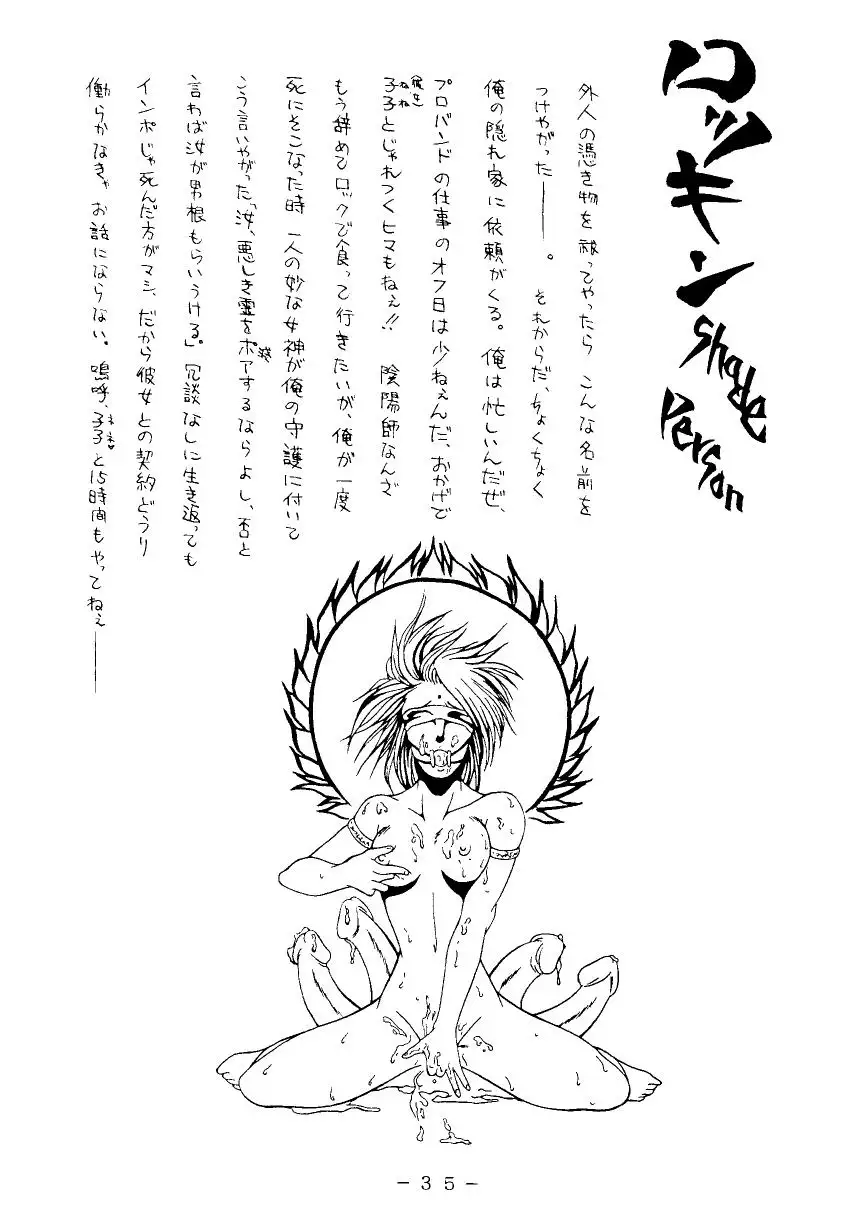 ロッキン
Shade
Person
外人の憑き物を祓ってやったら こんな名前を
つけやがった――。 それからだ、ちょくちょく
俺の隠れ家に依頼がくる。俺は忙しいんだぜ、
プロバンドの仕事のオフ日は少ねぇんだ、おかげで
子子とじゃれつくヒマもねぇ!! 陰陽師なんざ
もう辞めてロックで食って行きたいが、俺が一度
死にそこなった時 一人の妙な女神が俺の守護に付いて
こう言いやがった「汝、悪しき霊をポアするならよし、否と
言わば汝が男根もらいうける。」冗談なしに生き返っても
インポじゃ死んだ方がマシ、だから彼女との契約どうり
働らかなきゃお話にならない。嗚呼、子子と15時間もやってねぇ――
- 35 -